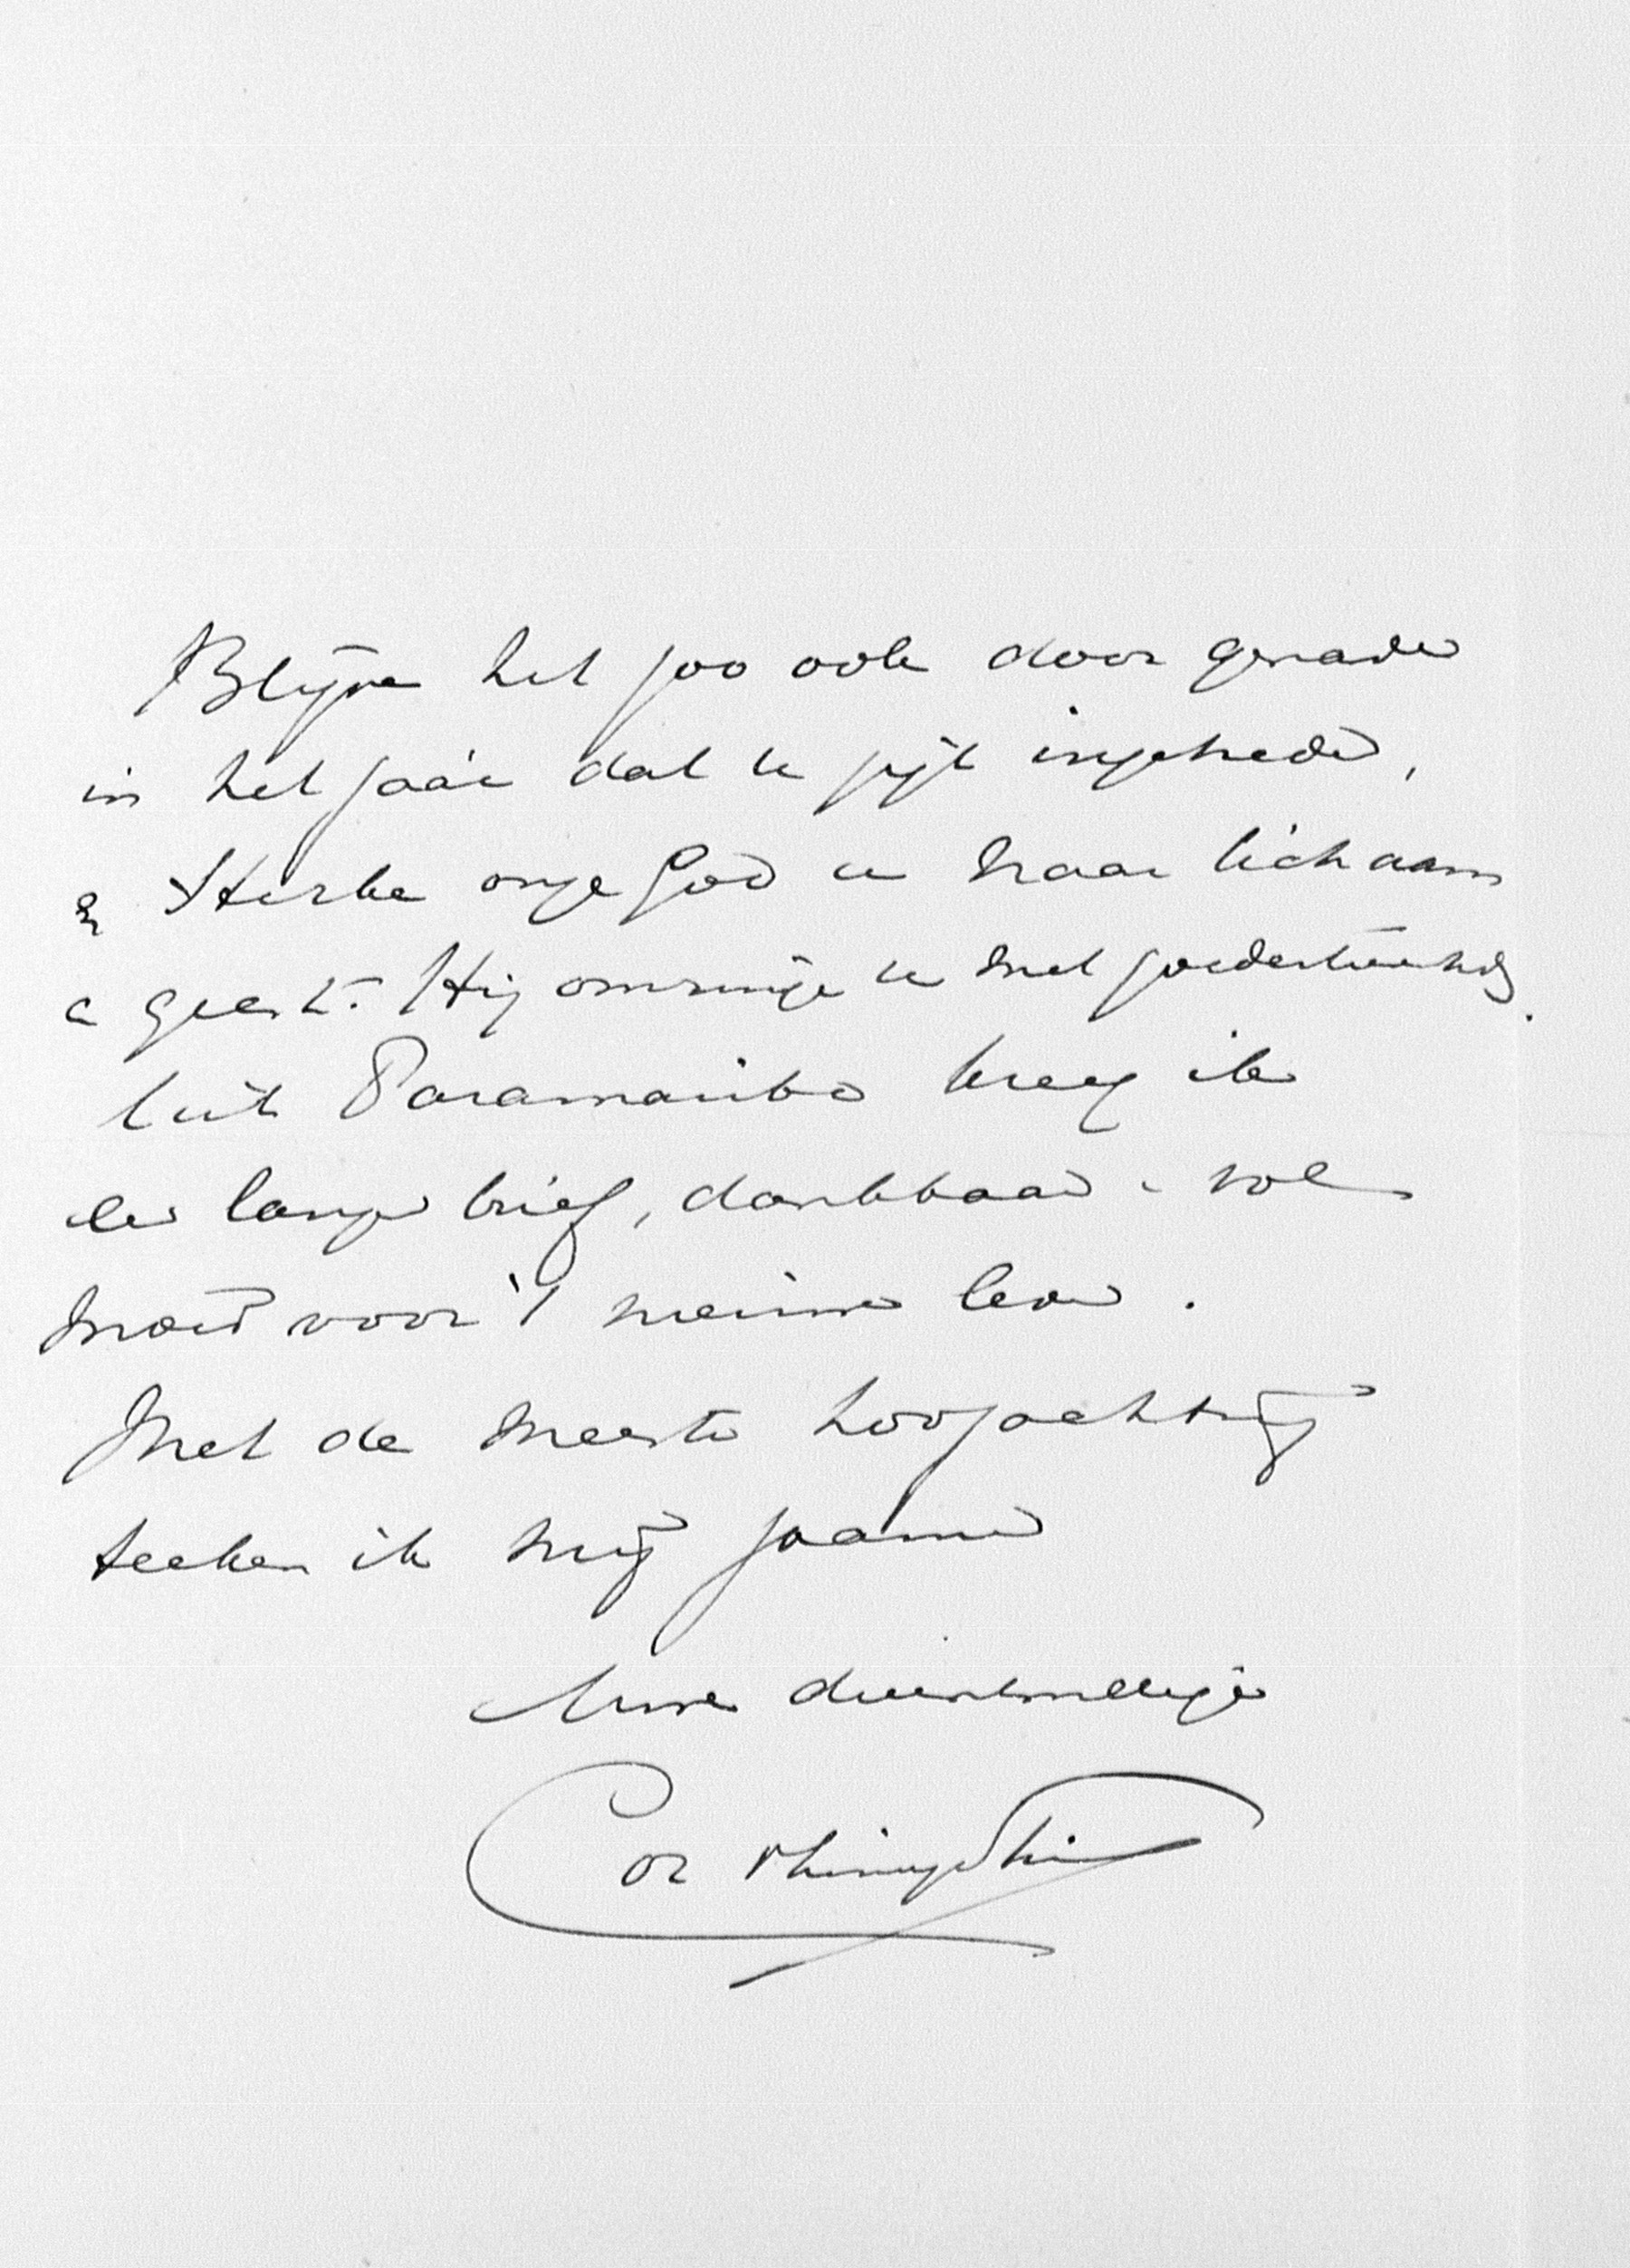 Blijve het zoo ook door genade
in het jaar dat u zijt ingetreden,
& sterke onze God u naar lichaam
& geest. Hij omringe u met goedertierenh.
Uit Paramaribo kreeg ik
een lange brief, dankbaar & vol
moed voor 't nieuwe leven.
Met de meeste hoogachting
teeken ik mij gaarne
Uwe dienstwillige
Cor